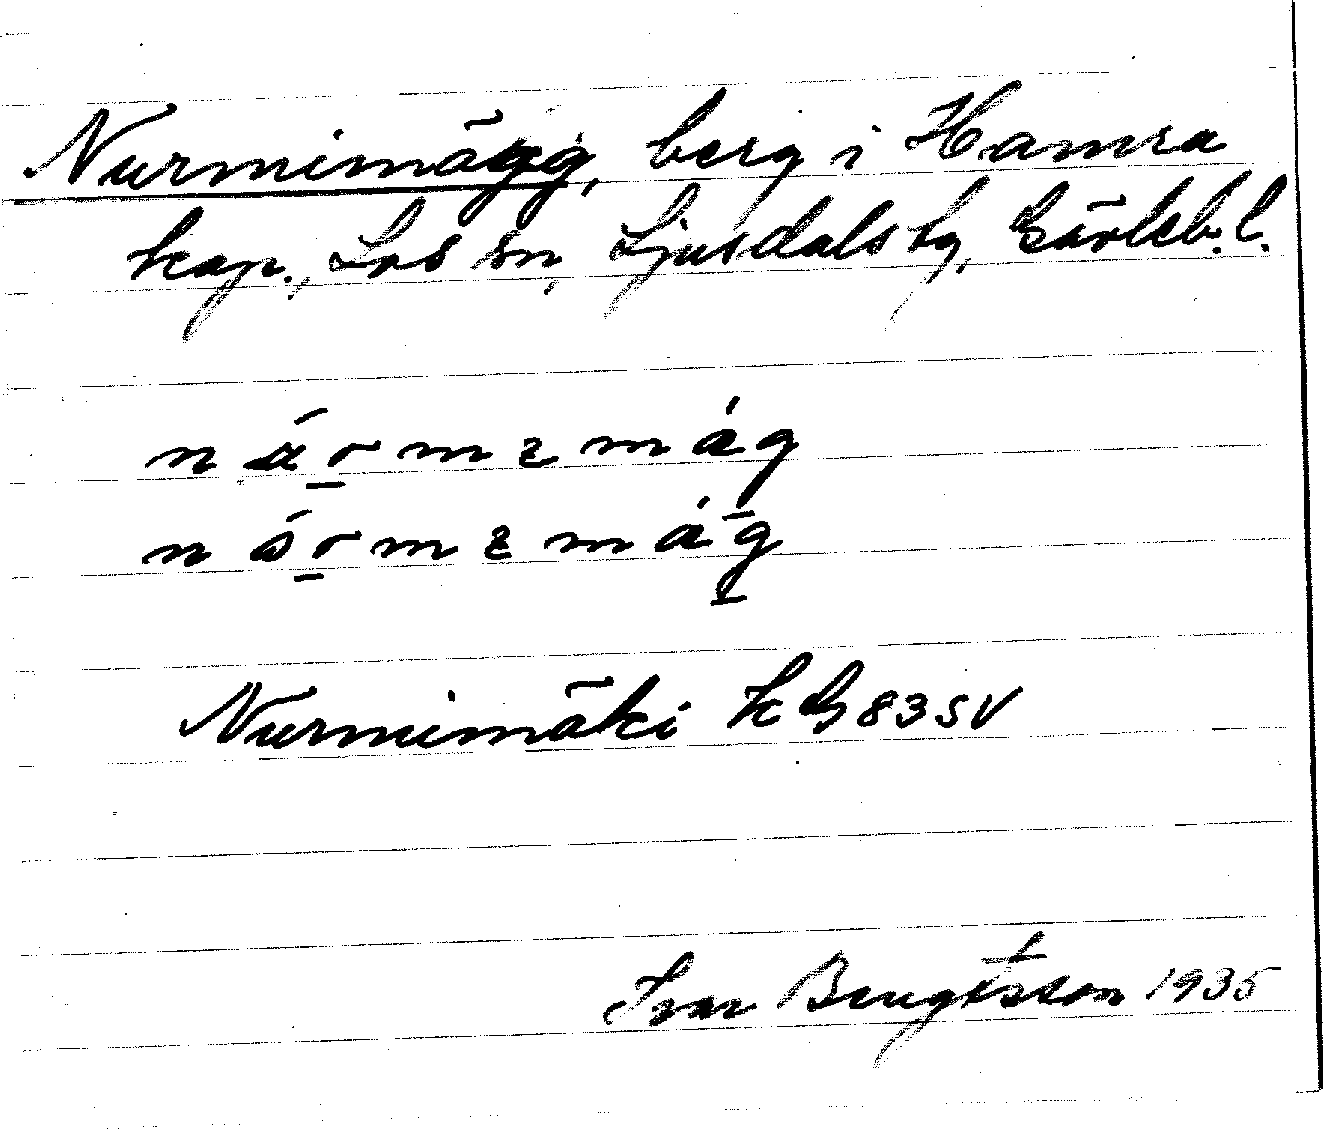 Nurmimägg, berg i Hamra
kap., Los sn, Ljusdals tg, Gävleb. l.
Nurmimäki KB 83 SV
Ivar Bengtsson 1935